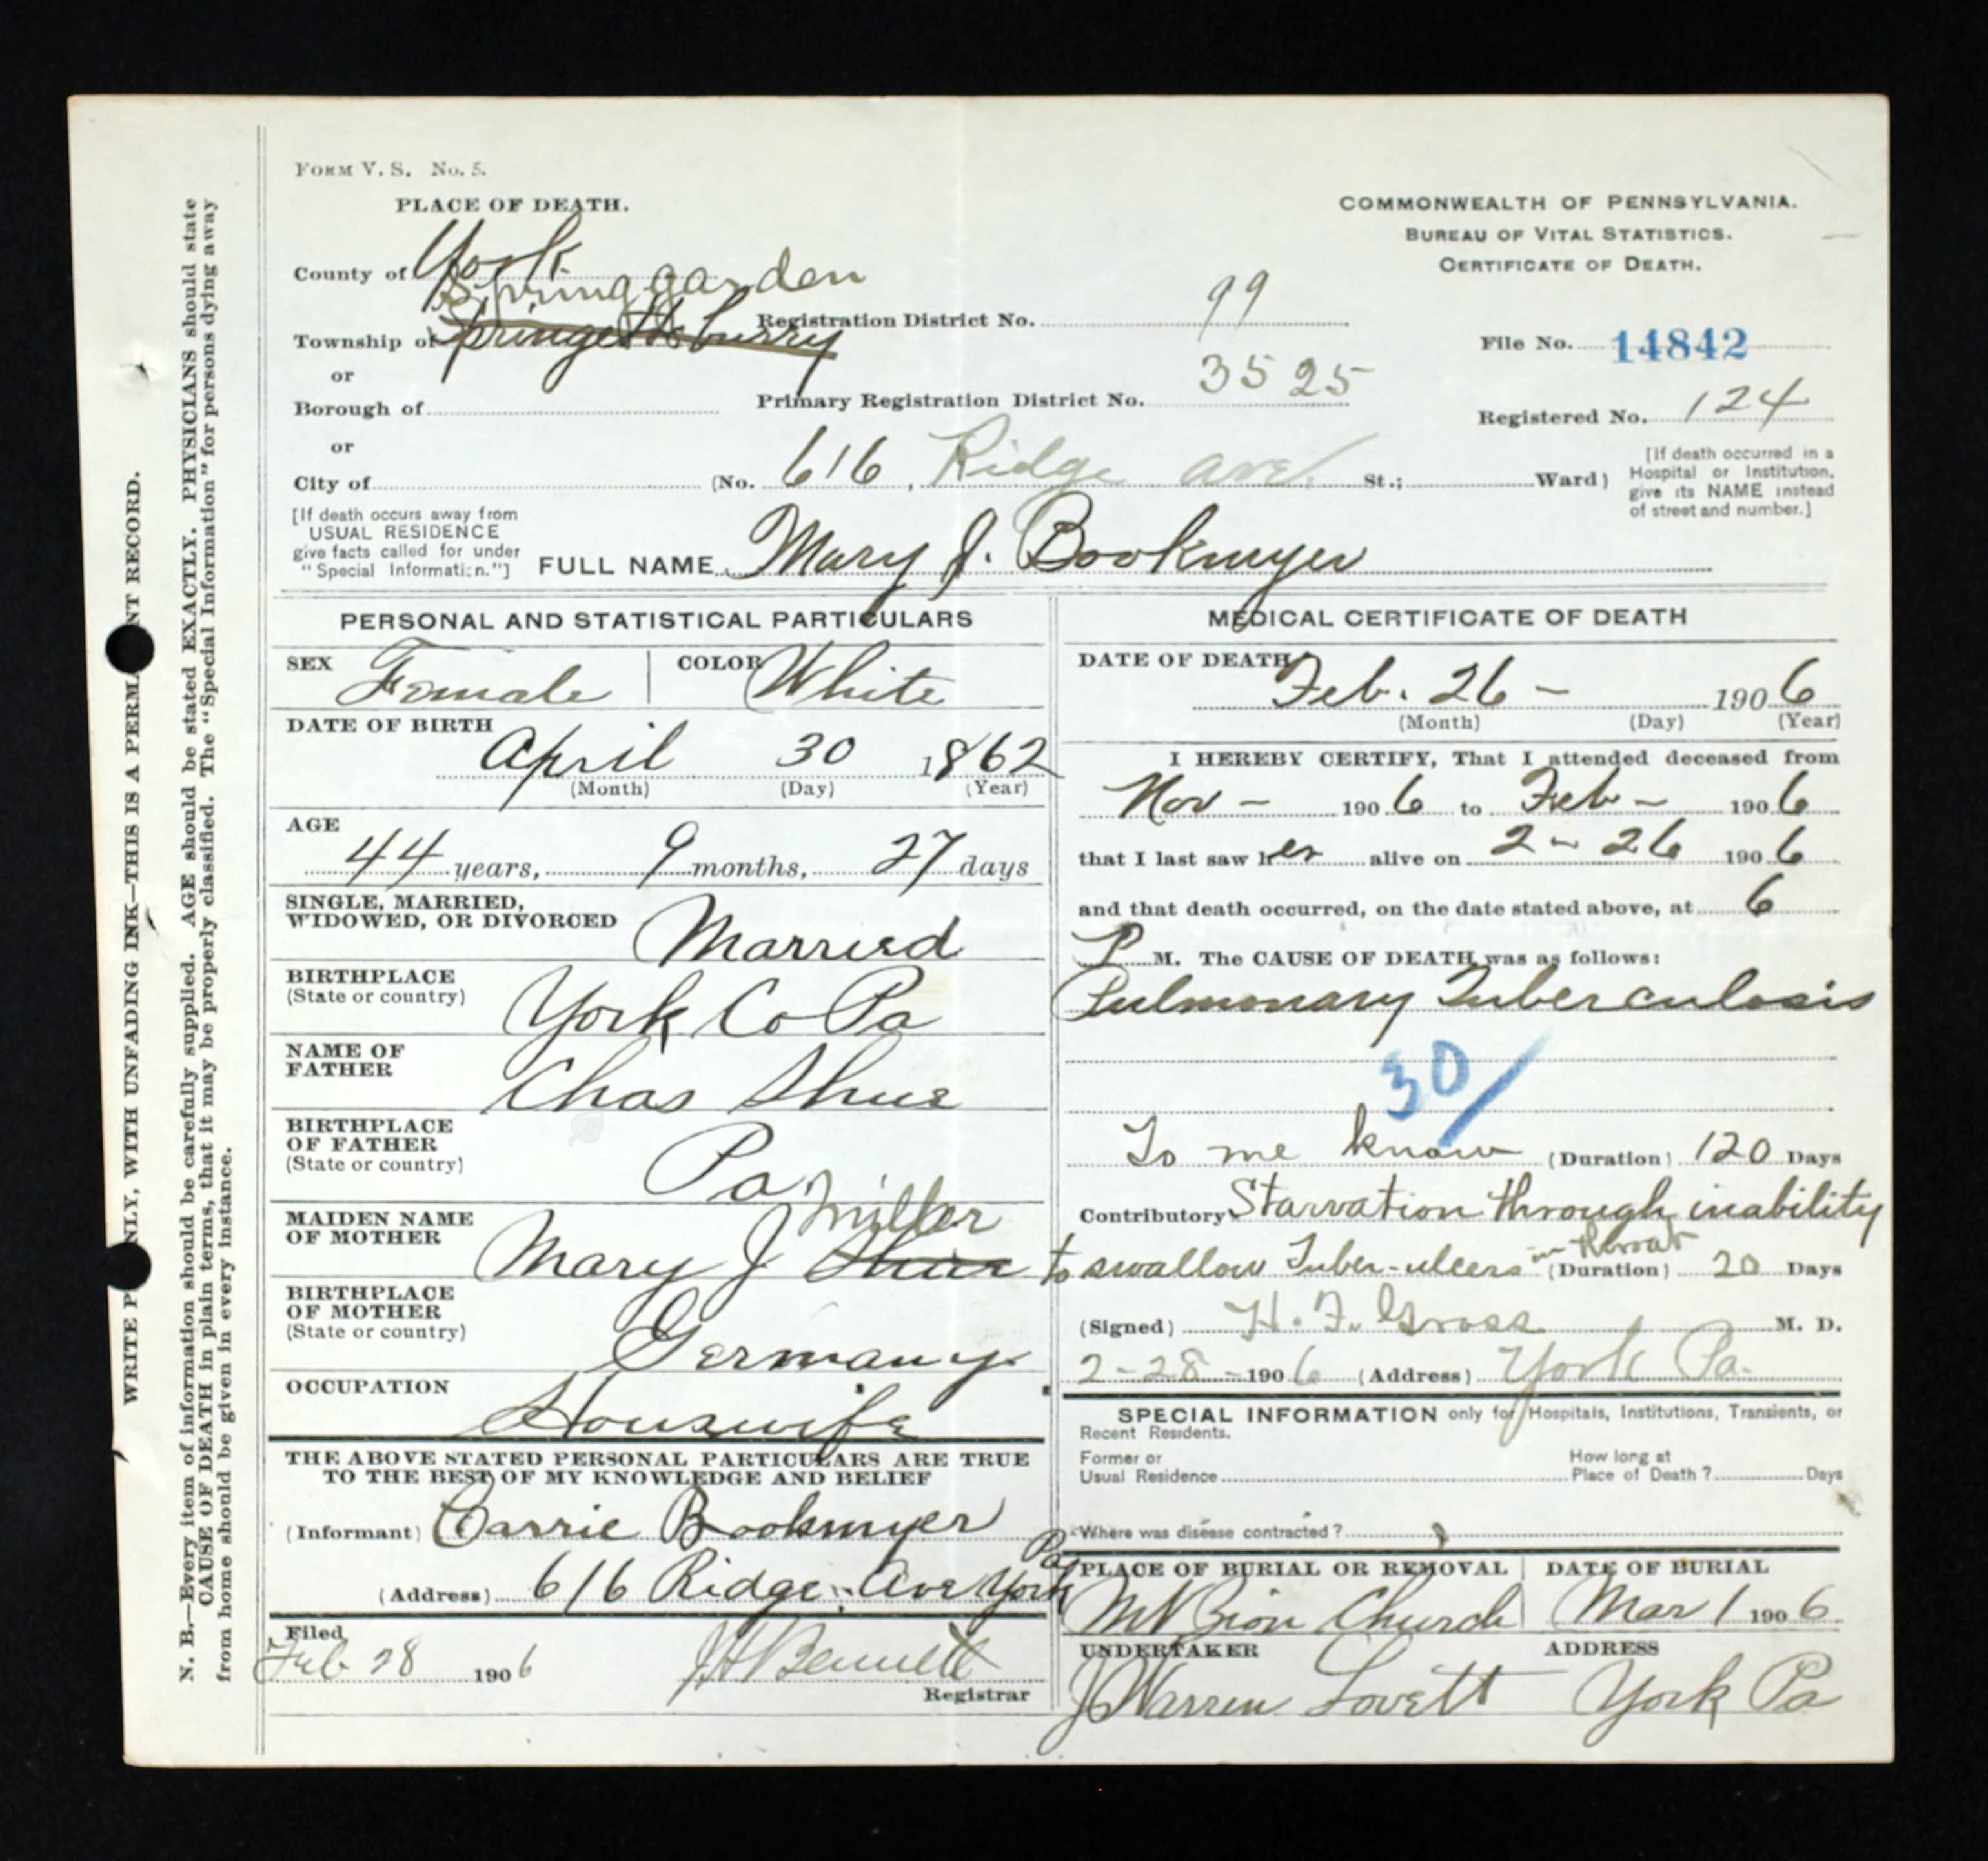 FORM V. S. No. 5.
PLACE OF DEATH.
COMMONWEALTH OF PENNSYLVANIA.
BUREAU OF VITAL STATISTICS.
CERTIFICATE OF DEATH.
County of York
Spring garden
Township of Springettsburry
Registration District No. 99
File No. 14842
or
Borough of
Primary Registration District No. 3525
Registered No. 124
or
City of (No. 616, Ridge ave. St.; Ward)
[If death occurred in a
Hospital or Institution,
give its NAME instead
of street and number.]
[If death occurs away from
USUAL RESIDENCE
give facts called for under
"Special Information."]
FULL NAME Mary J. Bookmyer
PERSONAL AND STATISTICAL PARTICULARS
SEX Female COLOR White
DATE OF BIRTH
April 30 1862
(Month) (Day) (Year)
AGE
44 years, 9 months, 27 days
SINGLE, MARRIED,
WIDOWED, OR DIVORCED Married
BIRTHPLACE
(State or country) York Co Pa
NAME OF
FATHER Chas Shue
BIRTHPLACE
OF FATHER
(State or country) Pa
MAIDEN NAME
OF MOTHER Mary J Shue Miller
BIRTHPLACE
OF MOTHER
(State or country) Germany
OCCUPATION
Housewife
THE ABOVE STATED PERSONAL PARTICULARS ARE TRUE
TO THE BEST OF MY KNOWLEDGE AND BELIEF
(Informant) Carrie Bookmyer
(Address) 616 Ridge Ave York Pa
Filed
Feb 28 1906 J H Bennett
Registrar
MEDICAL CERTIFICATE OF DEATH
DATE OF DEATH
Feb. 26 - 1906
(Month) (Day) (Year)
I HEREBY CERTIFY, That I attended deceased from
Nov - 1906 to Feb - 1906
that I last saw her alive on 2 - 26 1906
and that death occurred, on the date stated above, at 6
P M. The CAUSE OF DEATH was as follows:
Pulmonary Tuberculosis
30/
To me know (Duration) 120 Days
Contributory Starvation through inability
to swallow Tuber-ulcers in throat (Duration) 20 Days
(Signed) H. F. Gross M. D.
2-28- 1906 (Address) York Pa.
SPECIAL INFORMATION only for Hospitals, Institutions, Transients, or
Recent Residents.
Former or
Usual Residence
How long at
Place of Death? Days
Where was disease contracted?
PLACE OF BURIAL OR REMOVAL DATE OF BURIAL
Mt Zion Church Mar 1 1906
UNDERTAKER ADDRESS
J Warren Lovett York Pa
WRITE P NLY, WITH UNFADING INK—THIS IS A PERMA NT RECORD.
N. B.—Every item of information should be carefully supplied. AGE should be stated EXACTLY. PHYSICIANS should state
CAUSE OF DEATH in plain terms, that it may be properly classified. The "Special Information" for persons dying away
from home should be given in every instance.